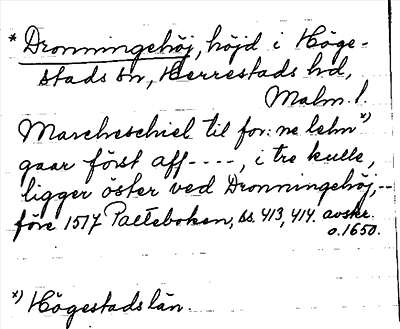 * Dronningehöj, höjd i Höge-
stads sn, Herrestads hd,
Malm. l.
Marcheschiel til for: ne lehn x)
gaar först aff ----, i tre kulle,
ligger öster ved Dronningehöj, --
före 1517 Palteboken, ss. 413, 414. avskr.
o. 1650.
x) Högestads län.